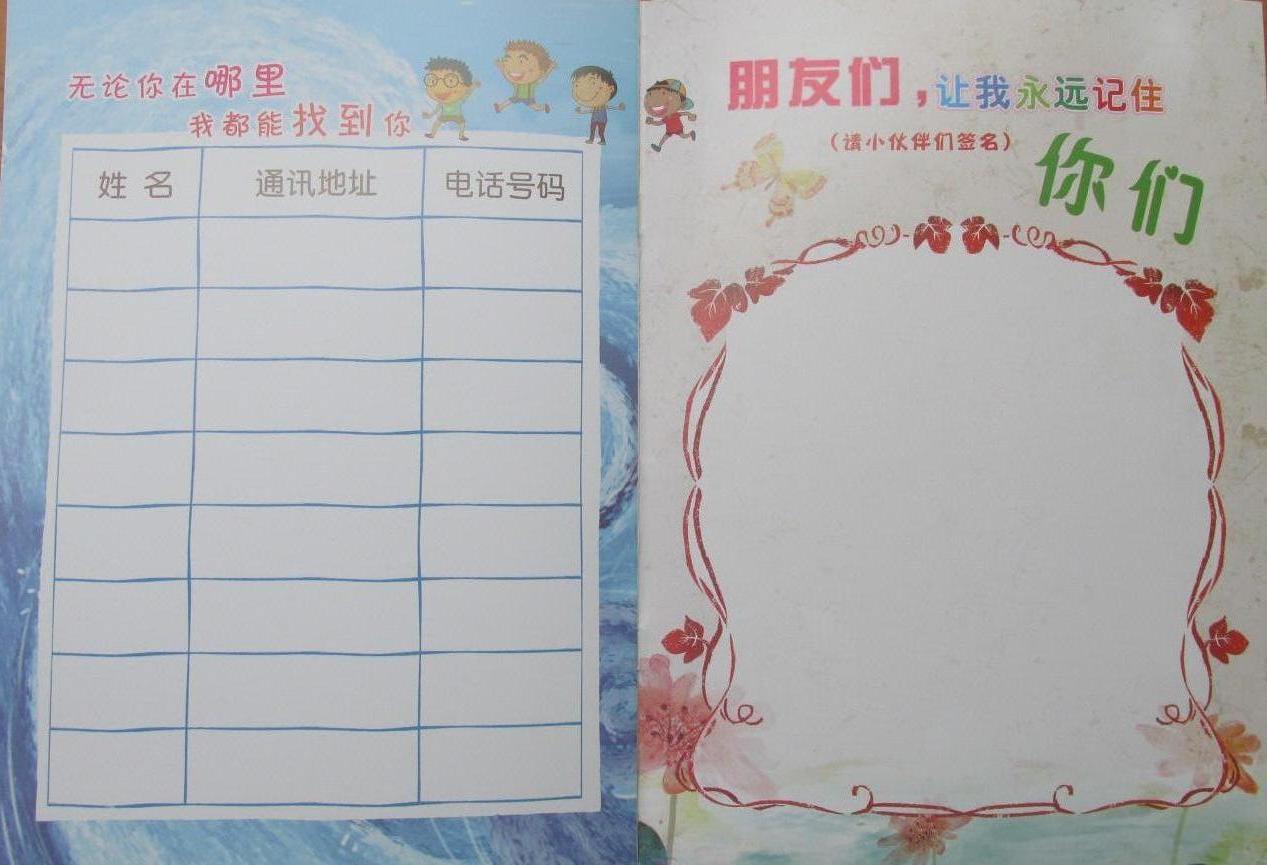 无论你在哪里
我都能找到你
姓 名 通讯地址 电话号码
朋友们，让我永远记住
（请小伙伴们签名）
你们